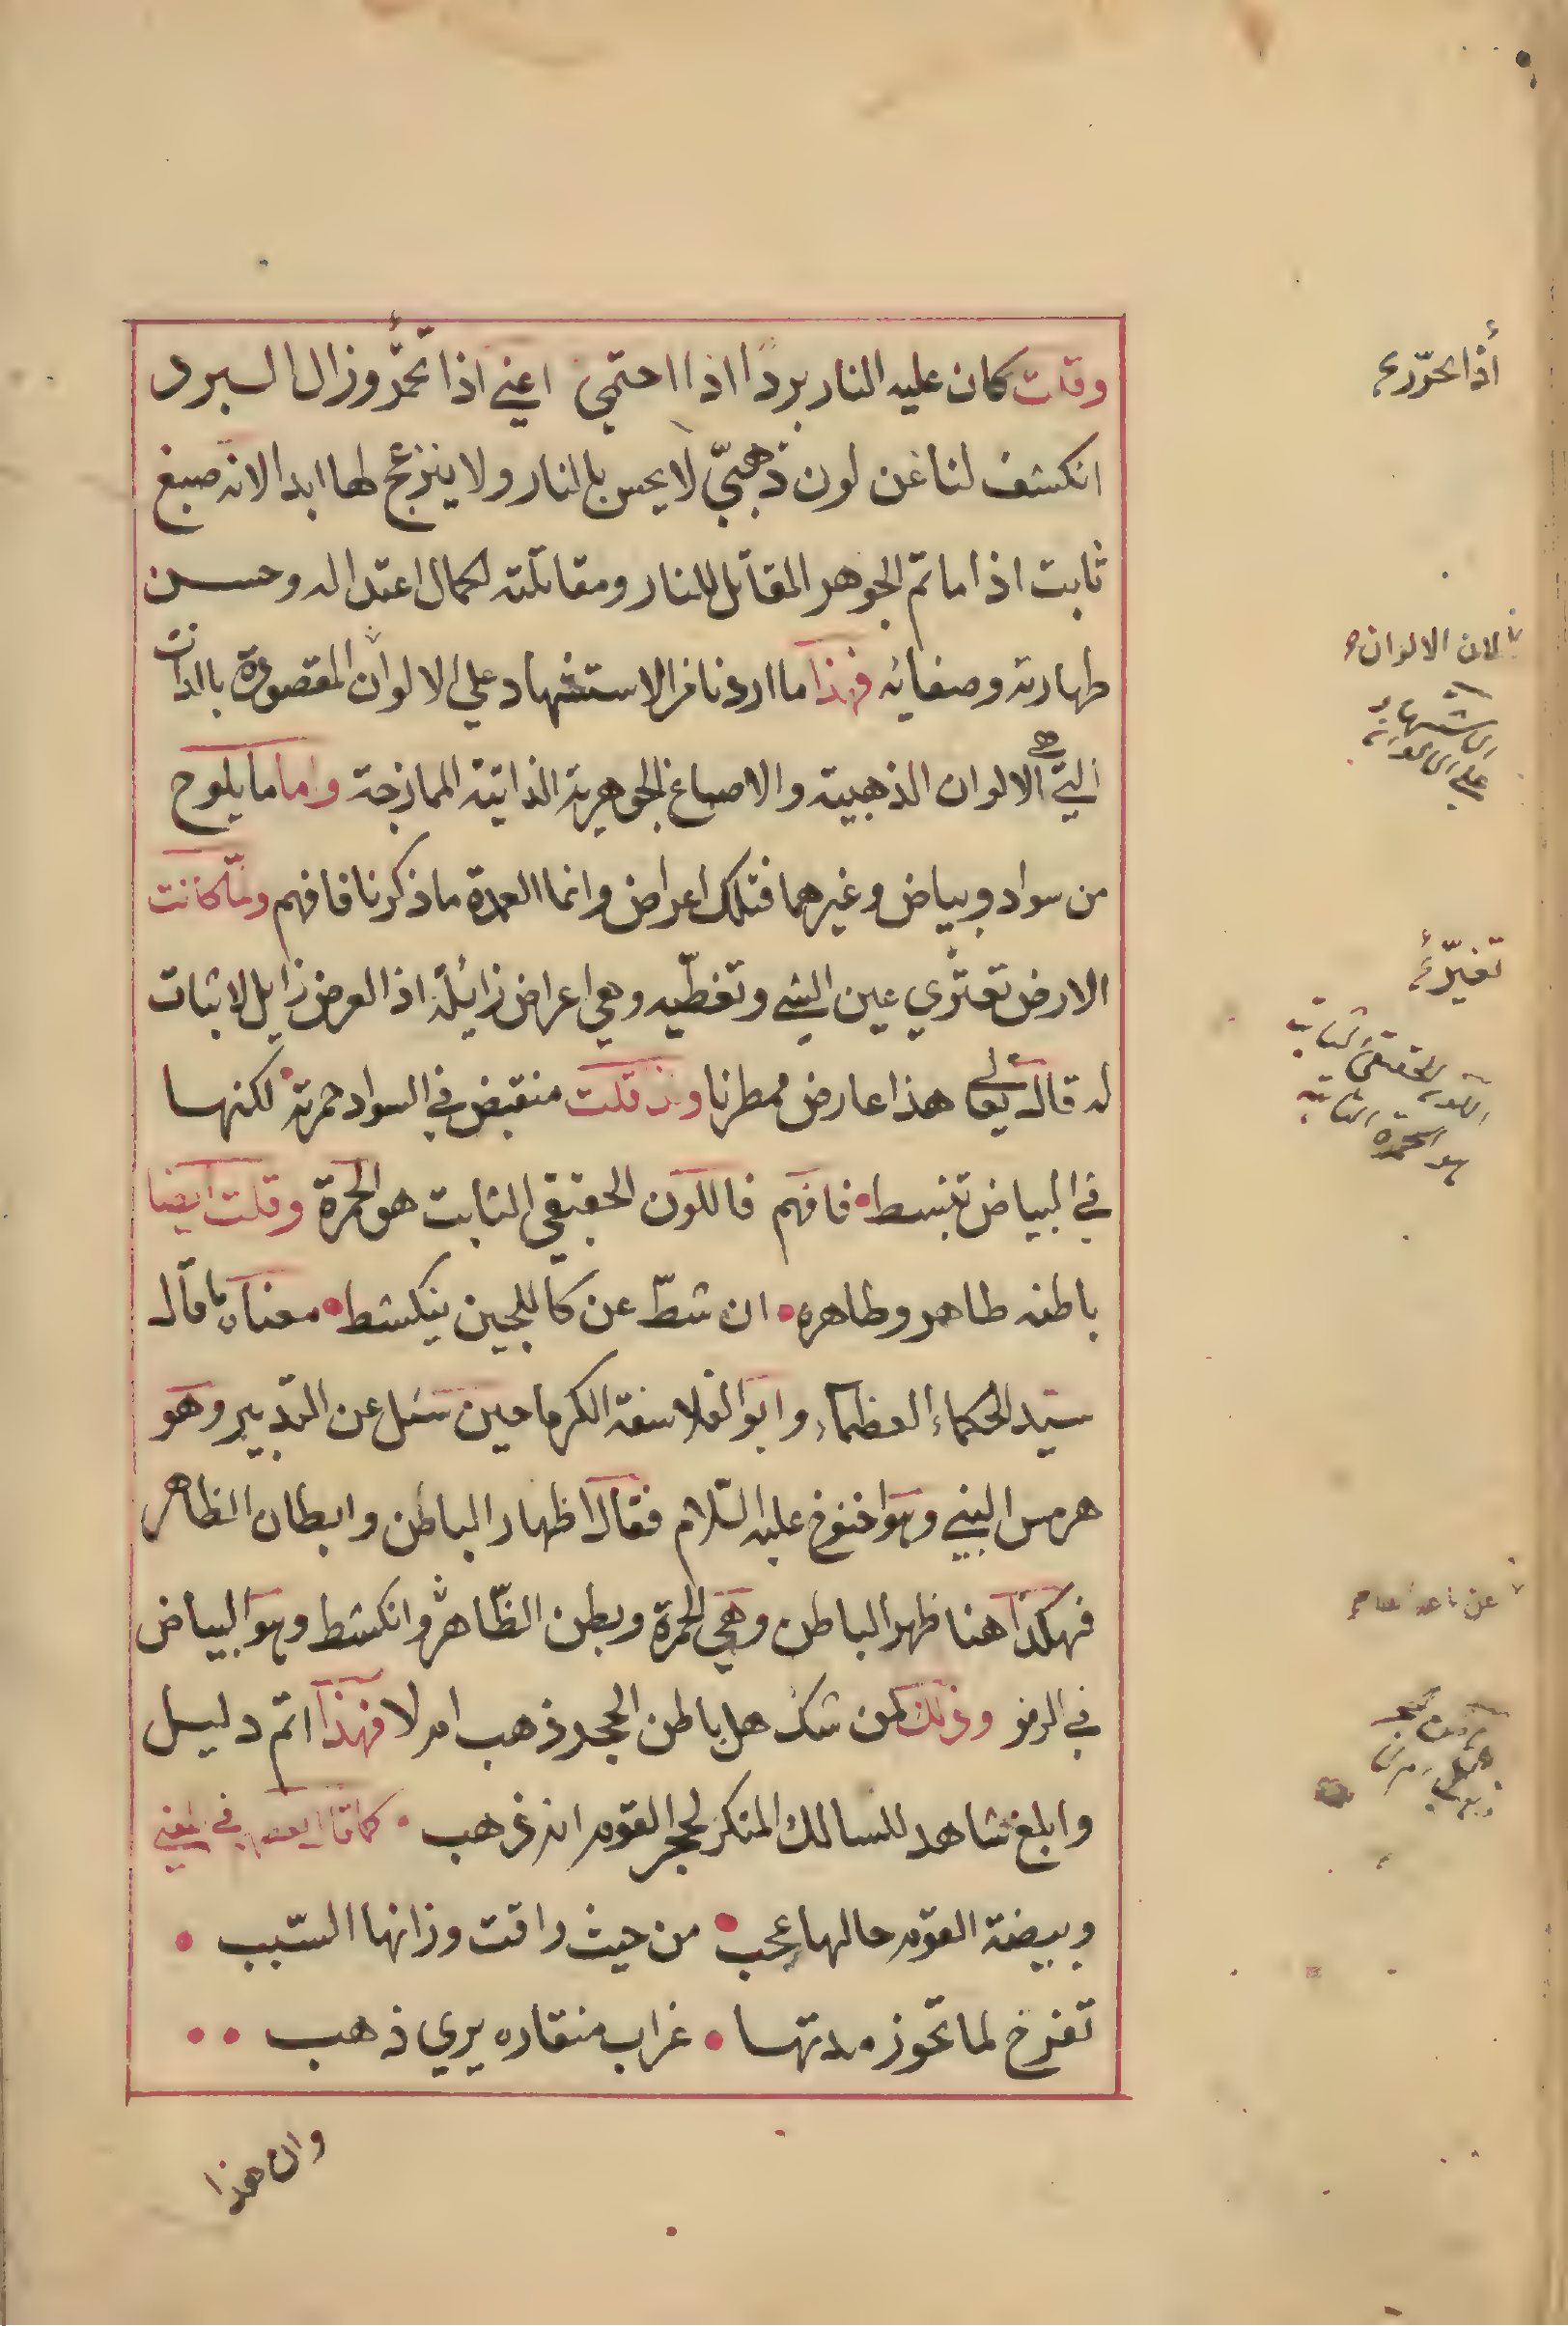 وقلت كان عليه النار بردًا اذا احتمي اعني اذا تخمّر وزال البرد
انكشف لنا عن لون ذهبيّ لا يحس بالنار ولا ينزعج لها ابدا لانه صبغ
ثابت اذا ما تم الجوهر المقاتل للنار ومقاتلته لكمال اعتداله وحسن
طهارته وصفائه فهذا ما اردنا من الاستشهاد علي الالوان المقصودة بالذات
التي هي الالوان الذهبية والاصباغ الجوهرية الذاتية الممازجة واما ما يلوح
من سواد وبياض وغيرهما فتلك اعراض وانما العمدة ما ذكرنا فافهم ولمّا كانت
الارض تعتري عين الشي وتغطّيه وهي اعراض زائلة اذ العرض زايل لا ثبات
له قال تعالي هذا عارض ممطرنا وقد قلت منقبض في السواد حمرته لكنها
في البياض تنبسط فافهم فاللون الحقيقي الثابت هو الحمرة وقلت ايضا
باطنه طاهر وظاهره ان شطّ عن كاللجين ينكشط معناه ما قال
سيّد الحكماء العظماء وابو الفلاسفة الكرما حين سئل عن التدبير وهو
هرمس النبي وهو اخنوخ عليه السّلام فقال اظهار الباطن وابطان الظاهر
فهكذا هنا ظهر الباطن وهي الحمرة وبطن الظّاهر وانكشط وهو البياض
في الرمز وذلك لمن شك هل باطن الحجر ذهب ام لا فهذا اتم دليل
وابلغ شاهد للسالك المنكر لحجر القوم انه ذهب كما قال بعضهم في المعني
وبيضة القوم حالها عجب من حيث راقت وزانها السّبب
تفرخ لما تحوز مدتها غراب منقاره يري ذهب
وان هذا
لان الالوان
الاستشهاد
علي الالوان
اللون الحقيقي الثابت
هو الحمرة الثابتة